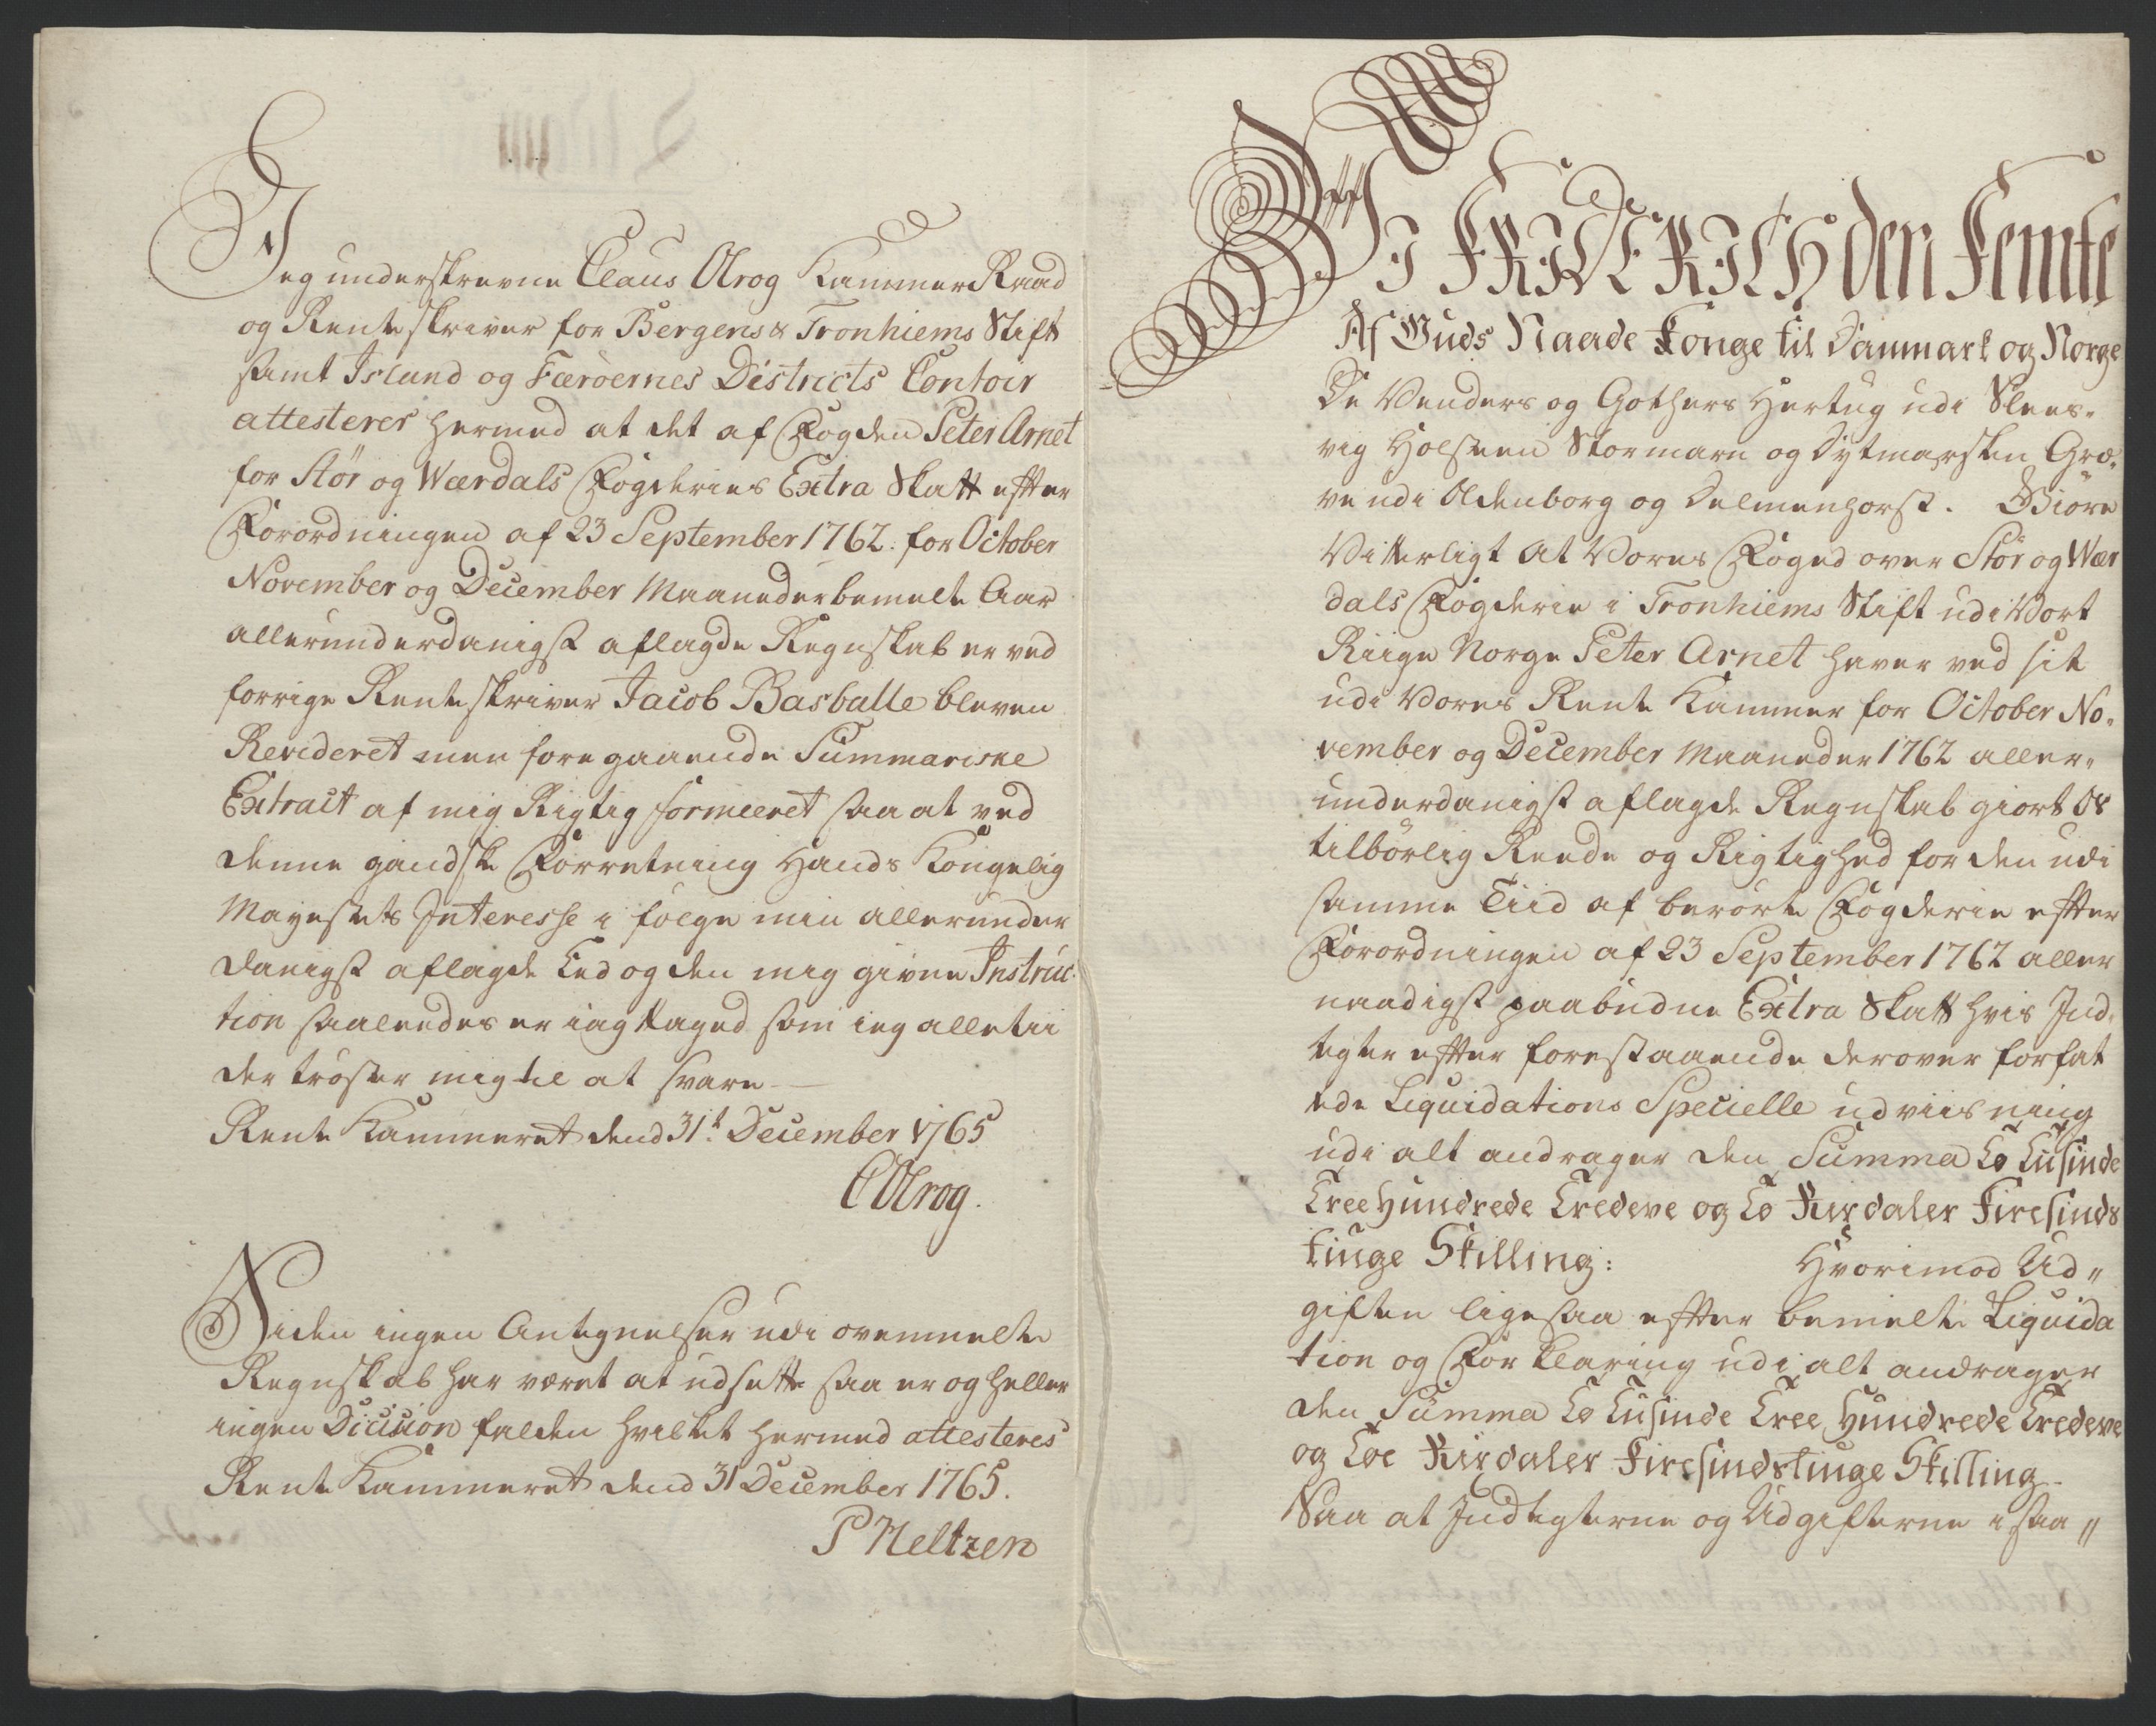 Jeg underskrevne Claus Olrog Kammer Raad
og Renteskriver for Bergens & Tronhiems Stift
samt Island og Færöernes Districts Contoir
attesterer hermed at det af Fogden Peter Arnet
for Stör og Wærdals Fogderies Extra Skatt efter
Forordningen af 23 September 1762. for October
November og December Maaneder bemelte Aar
allerunderdanigst aflagde Regnskab er ved
forrige Renteskriver Jacob Basballe bleven
Revideret men foregaaende Summariske
Extract af mig Rigtig formeeret saa at ved
denne gandske Forretning Hands Kongelig
Mayestets Interesse i folge min allerunder
danigst aflagde Eed og den mig givne Instruc-
tion saaledes er iagttaged som ieg alletii
der tröster mig til at svare
Rente Kammeret dend 31t December 1765
C Olrog.
Siden ingen Antegnelser udi ovenmelte
Regnskab har været at udsette saa er og heller
ingen Dicision falden hvilket hermed attesteres
Rente Kammeret dend 31 December 1765.
P Meltzen
VI FRIDERICH den Femte
Af Guds Naade Konge til Danmark og Norge
De Venders og Gothers Hertug udi Slees-
vig Holsteen Stormarn og Dytmarsken Græ-
ve udi Oldenborg og Delmenhorst. Giöre
Vitterligt At Vores Foged over Stör og Wær
dals Fogderie i Tronhiems Stift udi Vort
Riige Norge Peter Arnet haver ved sit
udi Vores Rente Kammer for October No-
vember og December Maaneder 1762 aller-
underdanigst aflagde Regnskab giort Os
tilbörlig Reede og Rigtighed for den udi
samme Tiid af berörte Fogderie efter
Forordningen af 23 September 1762 aller
naadigst paabudne Extra Skatt hvis Ind-
tegter efter forestaaende derover forfat
tede Liquidations Specielle udviisning
udi alt andrager den Summa To Tusinde
Tree Hundrede Tredeve og To Rixdaler Firesinds
tiuge Skilling: Hvorimod Ud-
giften ligesaa efter bemelte Liquida
tion og Forklaring udi alt andrager
den Summa To Tusinde Tree Hundrede Tredeve
og Toe Rixdaler Firesindstiuge Skilling
Saa at Indtegterne og Udgifterne i saa